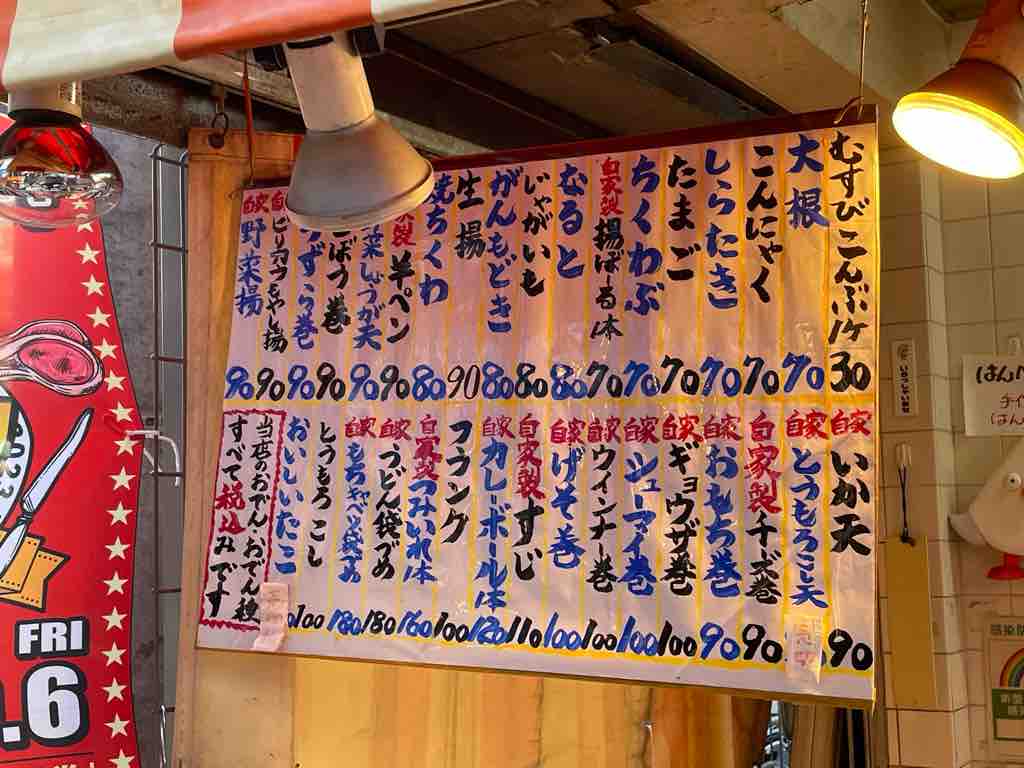 むすびこんぶ1ケ 30
大根 70
こんにゃく 70
しらたき 70
たまご 70
ちくわぶ 70
自家製 揚ぼーる1本 70
なると 80
じゃがいも 80
がんもどき 80
生揚 90
焼ちくわ 80
製 半ペン 90
菜しょうが天 90
ごぼう巻 90
うずら巻 90
もやし揚 90
自家 野菜揚 90
自家 いか天 90
自家 とうもろこし天
自家製 チーズ巻 90
自家 おもち巻 90
自家 ギョウザ巻 100
自家 シューマイ巻 100
自家 ウインナー巻 100
自家 げそ巻 100
自家製 すじ 110
自家 カレーボール1本 120
フランク 100
自家製 つみいれ1本 160
自家 うどん袋づめ 180
自家 もちキャベツ袋づめ 180
とうもろこし 100
おいしいたこ
当店のおでん、おでん種
すべて税込みです
FRI
.6
いらっしゃいませ
はんぺ